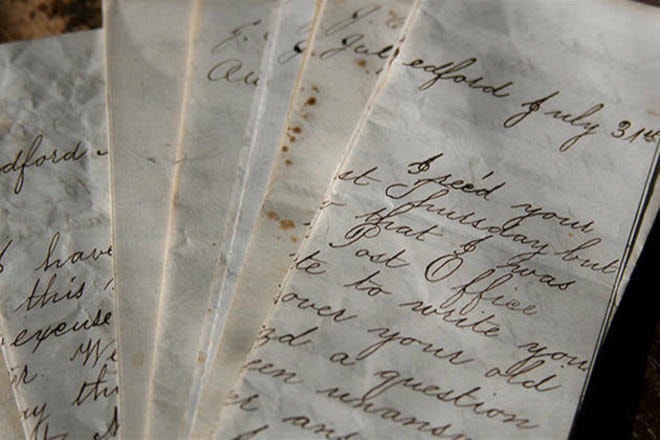 dford
I have
this
excuse
r. We
Au
Jul
edford July 31st
I rec'd your
st Thursday but
that I was
Post Office
te to write you
over your old
d a question
een unansw